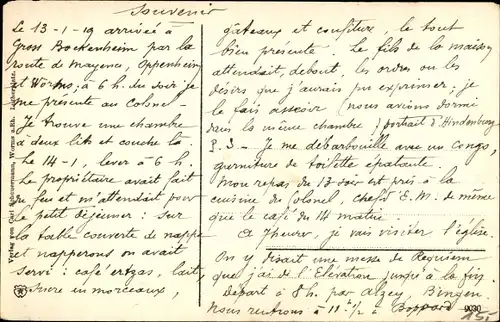 Souvenir
Le 13-1-19 arrivée à
Gross Bockenheim par la
route de Mayence, Oppenheim
et Worms, à 6 h. du soir je
me présente au Colonel
Je trouve une chambre
à deux lits et couche là.
Le 14-1, lever à 6 h.
Le propriétaire avait fait
du feu et m'attendait pour
le petit déjeuner : sur
la table couverte de nappe
et napperons on avait
servi : café ertzas, lait,
Sucre en morceaux,
gâteaux et confiture, le tout
bien présenté. Le fils de la maison
attendait, debout, les ordres ou les
désirs que j'aurais pu exprimer, je
le fais asseoir (nous avions dormi
dans la même chambre) portrait d'Hindenburg
P.S - Je me débarbouille avec un Congo,
garniture de toilette épatante
Mon repas du 13 soir est pris à la
cuisine du Colonel, chef d'E.M. de même
que le café du 14 matin.
A 7 heures, je vais visiter l'église.
On y disait une messe de Requiem
que j'ai de l'Elévation jusqu'à la fin.
Départ à 8h. par Alzey, Bingen.
Nous rentrons à 11 h 1/2 à Boppard
Verlag von Carl Worms a. Rh.
9030
15.